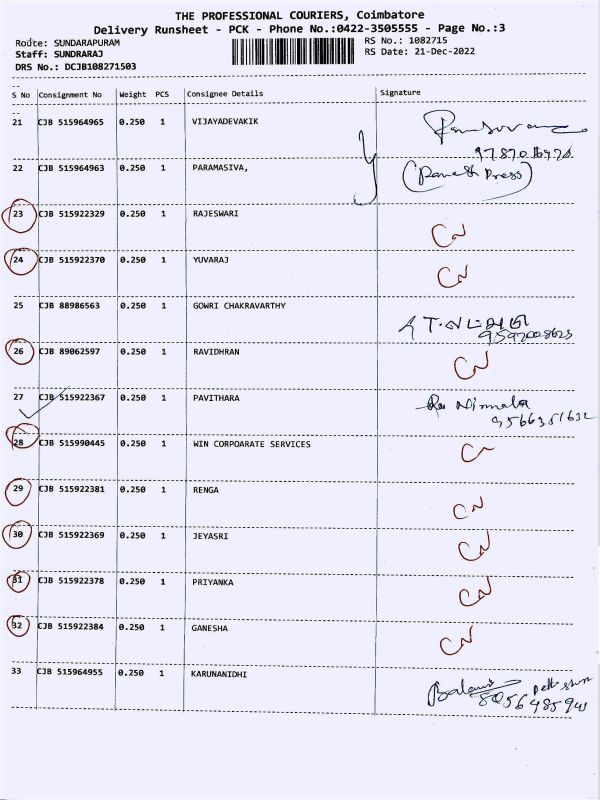 THE PROFESSIONAL COURIERS, Coimbatore
Delivery Runsheet - PCK - Phone No.:0422-3505555 - Page No.:3
Route: SUNDARAPURAM
RS No.: 1082715
Staff: SUNDRARAJ
RS Date: 21-Dec-2022
DRS No.: DCJB108271503
S No Consignment No Weight PCS Consignee Details Signature
21 CJB 515964965 0.250 1 VIJAYADEVAKIK
22 CJB 515964963 0.250 1 PARAMASIVA,
(Ramesh Press)
23 CJB 515922329 0.250 1 RAJESWARI
24 CJB 515922370 0.250 1 YUVARAJ
25 CJB 88986563 0.250 1 GOWRI CHAKRAVARTHY
26 CJB 89062597 0.250 1 RAVIDHRAN
27 CJB 515922367 0.250 1 PAVITHARA Nirmala
9566351632
28 CJB 515990445 0.250 1 WIN CORPOARATE SERVICES
29 CJB 515922381 0.250 1 RENGA
30 CJB 515922369 0.250 1 JEYASRI
31 CJB 515922378 0.250 1 PRIYANKA
32 CJB 515922384 0.250 1 GANESHA
33 CJB 515964955 0.250 1 KARUNANIDHI